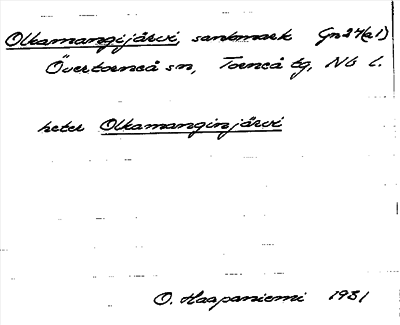 Olkamangijärvi, sankmark Gn27(a1)
Övertorneå sn, Torneå tg, Nb l.
heter Olkamanginjärvi
O. Haapaniemi 1931